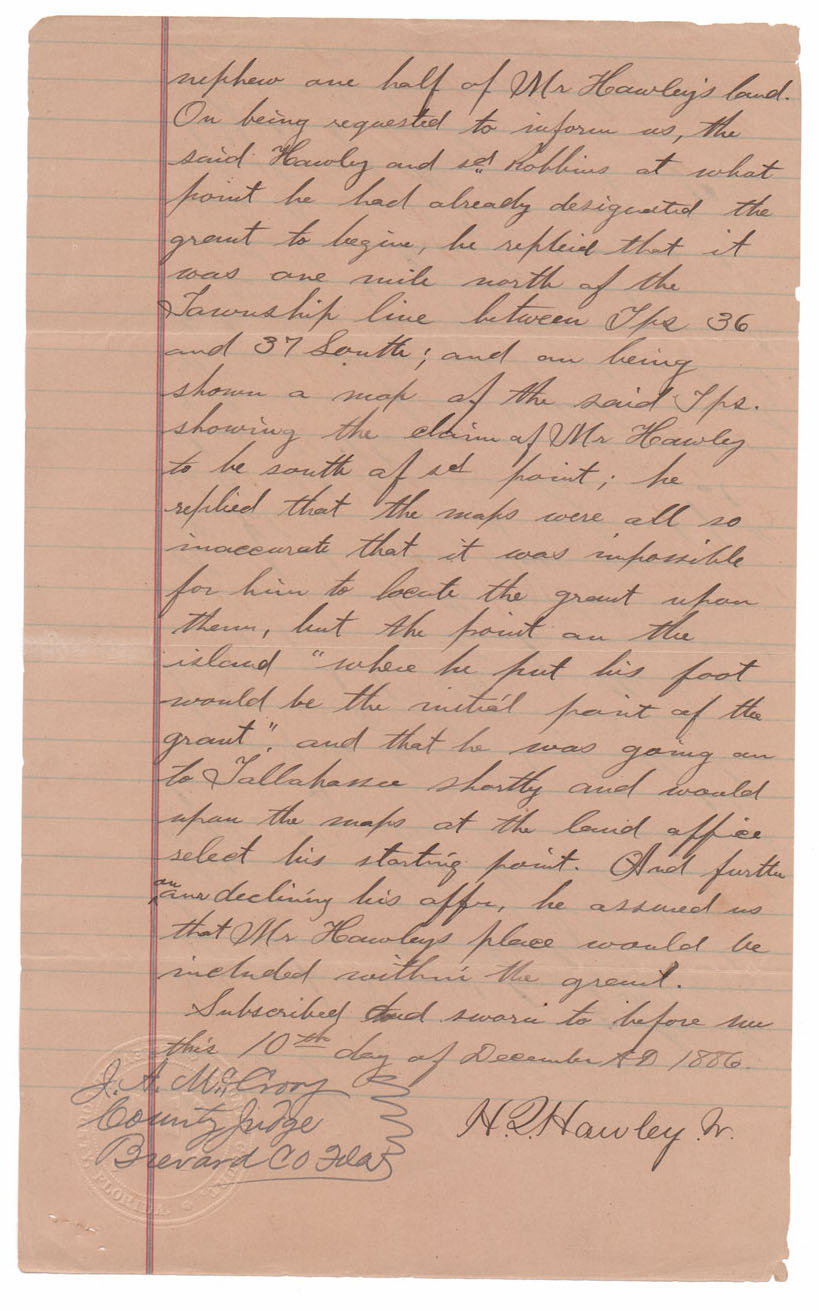 nephew one half of Mr Hawley's land.
On being requested to inform us, the
said Hawley and sd Robbins at what
point he had already designated the
grant to begine, he replied that it
was one mile north of the
Township line between Tps 36
and 37 South; and on being
shown a map of the said Tps.
showing the claim of Mr Hawley
to be south of sd point; he
replied that the maps were all so
inaccurate that it was impossible
for him to locate the grant upon
them, but the point on the
island "where he put his foot
would be the initial point of the
grant", and that he was going on
to Tallahassee shortly and would
upon the maps at the land office
select his starting point. And further
on our declining his offer, he assured us
that Mr Hawleys place would be
included within the grant.
Subscribed and sworn to before me
this 10th day of December A D 1886.
J. A. McCrory
County Judge
Brevard Co Fla
H. Q. Hawley Jr.
FLORIDA